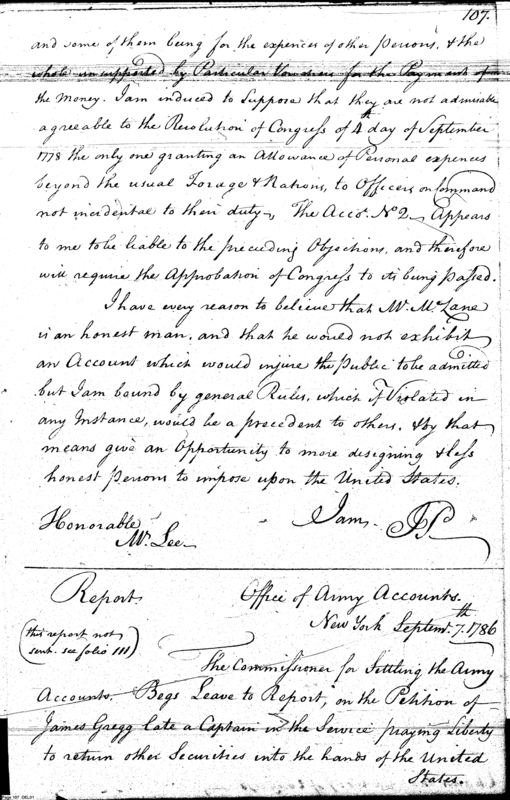 107.
and some of them being for the expences of other Persons, & the
whole unsupported by Particular Vouchers for the Payment of
the money. I am induced to Suppose that they are not admissable
agreeable to the Resolution of Congress of 4th day of September
1778 the only one granting an Allowance of Personal expences
beyond the usual Forage & Rations, to Officers on Command
not incidental to their duty, The Acco. No. 2 Appears
to me to be liable to the preceeding Objections, and therefore
will require the Approbation of Congress to its being Passed.
I have every reason to believe that Mr. McLane
is an honest man, and that he would not exhibit
an Account which would injure the Public to be admitted
but I am bound by general Rules, which if Violated in
any Instance, would be a precedent to others, & by that
means give an Opportunity to more designing & less
honest Persons to impose upon the United States.
I am JP
Honorable
Mr. Lee
Report.
Office of Army Accounts.
New York Septem. 7th. 1786
(this report not
sent. see folio 111)
The Commissioner for Settling the Army
Accounts. Begs Leave to Report, on the Petition of
James Gregg late a Captain in the Service praying Liberty
to return other Securities into the hands of the United
States.